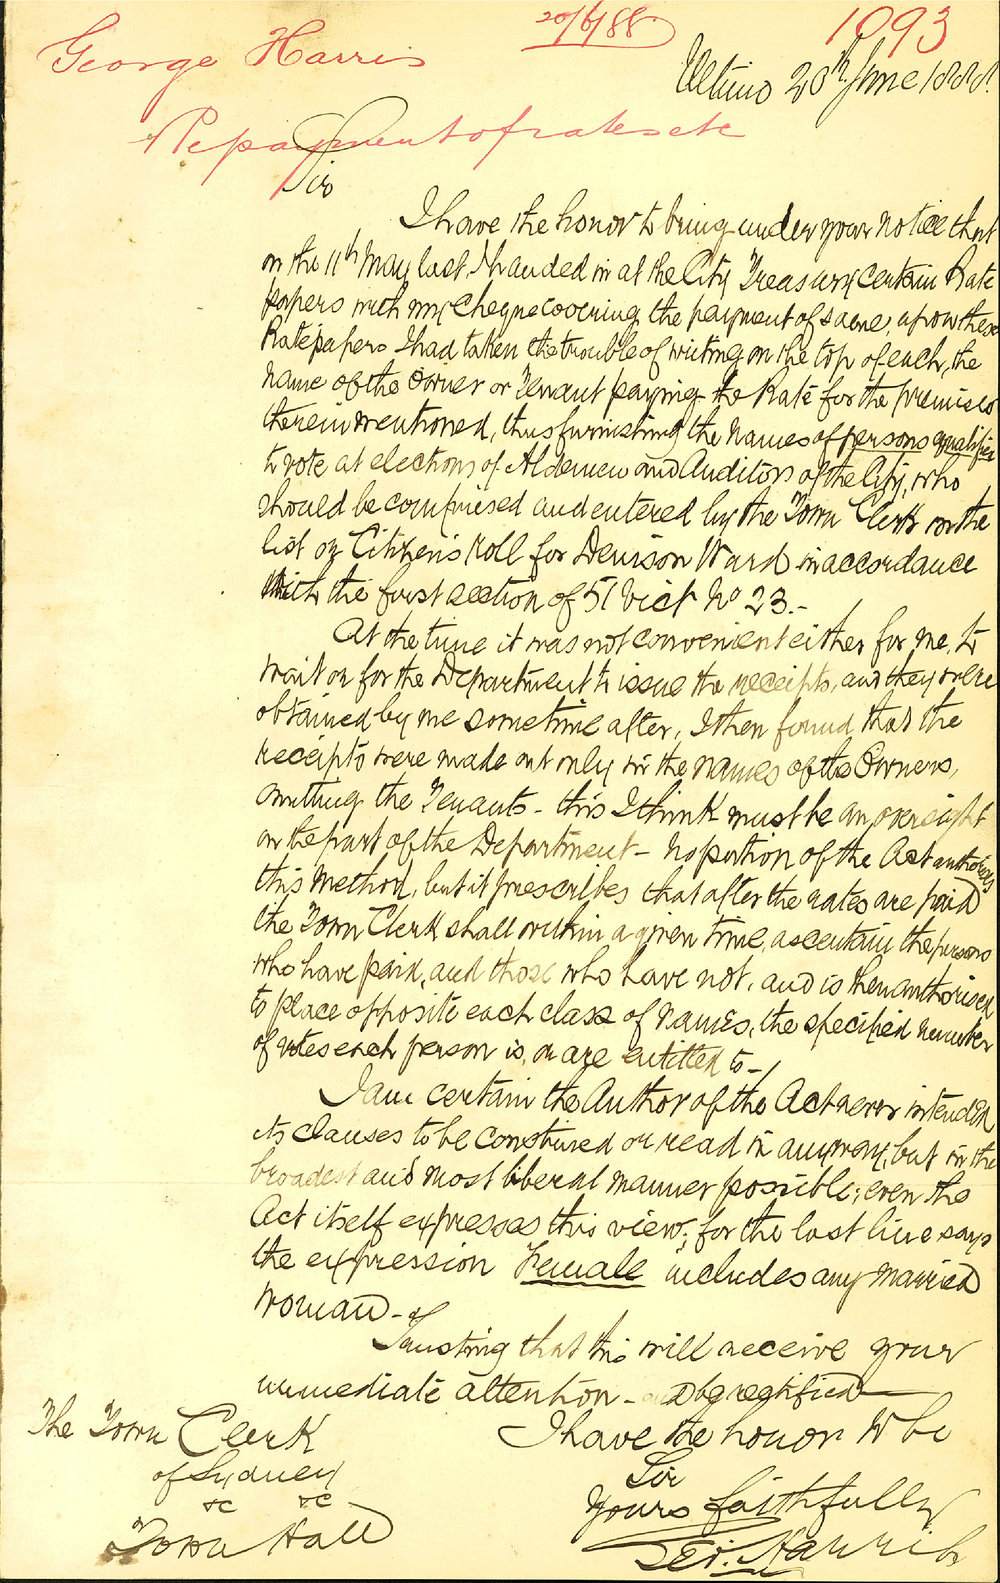 George Harris
20/6/88
1093
Ultimo 20th June 1888.
Repayment of rates etc
Sir
I have the honor to bring under your notice that
on the 11th May last, I handed in at the City Treasury certain Rate
papers with my cheque covering the payment of same, upon these
Rate papers I had taken the trouble of writing on the top of each, the
name of the Owner or Tenant paying the Rate for the premises
therein mentioned, thus furnishing the names of persons qualified
to vote at elections of Aldermen and Auditors of the City, who
should be comprised and entered by the Town Clerk on the
list or Citizen's Roll for Denison Ward in accordance
with the first section of 51 Vict No 23.-
At the time it was not convenient either for me, to
wait or for the Department to issue the receipts, and they were
obtained by me sometime after, I then found that the
receipts were made out only in the names of the Owners,
omitting the Tenants - this I think must be an oversight
on the part of the Department - No portion of the Act authorises
this method, but it prescribes that after the rates are paid
the Town Clerk shall within a given time, ascertain the persons
who have paid, and those who have not, and is then authorised
to place opposite each class of names, the specified number
of votes each person is, or are entitled to -
I am certain the Author of the Act never intended
its clauses to be construed or read in anyway, but in the
broadest and most liberal manner possible; even the
Act itself expresses this view; for the last line says
the expression Female includes any married
woman -
Trusting that this will receive your
immediate attention - & be rectified
I have the honor to be
Sir
Yours faithfully
Geo. Harris
The Town Clerk
of Sydney
&c &c
Town Hall